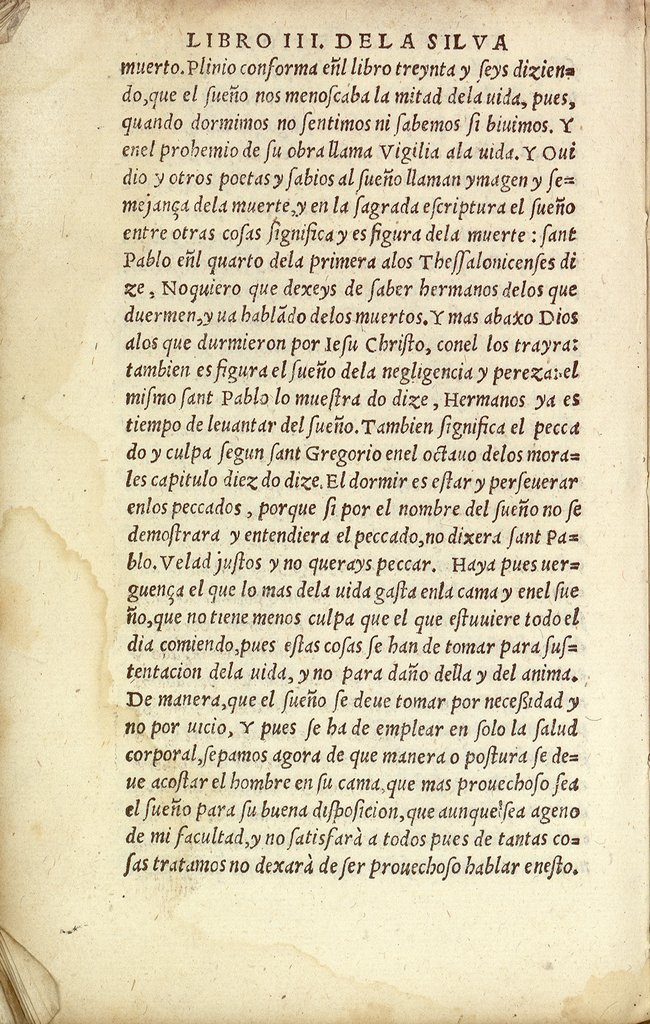 LIBRO III. DE LA SILVA
muerto. Plinio conforma eñl libro treynta y ſeys dizien=
do, que el ſueño nos menoſcaba la mitad dela uida, pues,
quando dormimos no ſentimos ni ſabemos ſi biuimos. Y
enel prohemio de ſu obra llama Vigilia ala uida. Y Oui
dio y otros poetas y ſabios al ſueño llaman ymagen y ſe=
mejança dela muerte, y en la ſagrada eſcriptura el ſueño
entre otras coſas ſignifica y es figura dela muerte : ſant
Pablo eñl quarto dela primera alos Theſſalonicenſes di
ze, No quiero que dexeys de ſaber hermanos delos que
duermen, y ua hablãdo delos muertos. Y mas abaxo Dios
alos que durmieron por Ieſu Chriſto, conel los trayra:
tambien es figura el ſueño dela negligencia y pereza: el
miſmo ſant Pablo lo mueſtra do dize, Hermanos ya es
tiempo de leuantar del ſueño. Tambien ſignifica el pecca
do y culpa ſegun ſant Gregorio enel octauo delos mora=
les capitulo diez do dize. El dormir es eſtar y perſeuerar
enlos peccados, porque ſi por el nombre del ſueño no ſe
demoſtrara y entendiera el peccado, no dixera ſant Pa=
blo. Velad juſtos y no querays peccar. Haya pues uer=
guença el que lo mas dela uida gaſta enla cama y enel ſue
ño, que no tiene menos culpa que el que eſtuuiere todo el
dia comiendo, pues eſtas coſas ſe han de tomar para ſuſ=
tentacion dela uida, y no para daño della y del anima.
De manera, que el ſueño ſe deue tomar por neceßidad y
no por uicio, Y pues ſe ha de emplear en ſolo la ſalud
corporal, ſepamos agora de que manera o poſtura ſe de=
ue acoſtar el hombre en ſu cama, que mas prouechoſo ſea
el ſueño para ſu buena diſpoſicion, que aunque ſea ageno
de mi facultad, y no ſatisfarà a todos pues de tantas co=
ſas tratamos no dexarà de ſer prouechoſo hablar eneſto.